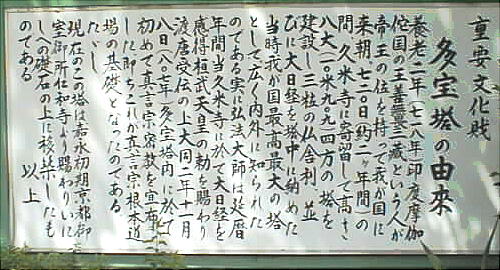 重要文化財
多宝塔の由来
養老二年(七一八年)印度摩伽
佗国の王善無畏三蔵という人が
帝王の位を持って我が国に
来朝、七二〇日(約二ヶ年間)の
間、久米寺に寄留して高さ
八丈(二〇米九九)四方の塔を
建設し三粒の仏舎利、並
びに大日経を塔中に納めた
当時我が国最高最大の塔
として広く内外に知られた
のである実に弘法大師は延暦
年間当久米寺に於て大日経を
感得桓武天皇の勅を賜わり
渡唐受伝の上大同二年十一月
八日(八〇七年)多宝塔内に於て
初めて真言宗密教を宣布
した即ちこれが真言宗根本道
場の基礎となったのである
たゞし
現在のこの塔は嘉永初期京都御
室御所仁和寺より賜わりいに
しへの礎石の上に移築したも
のである 以上